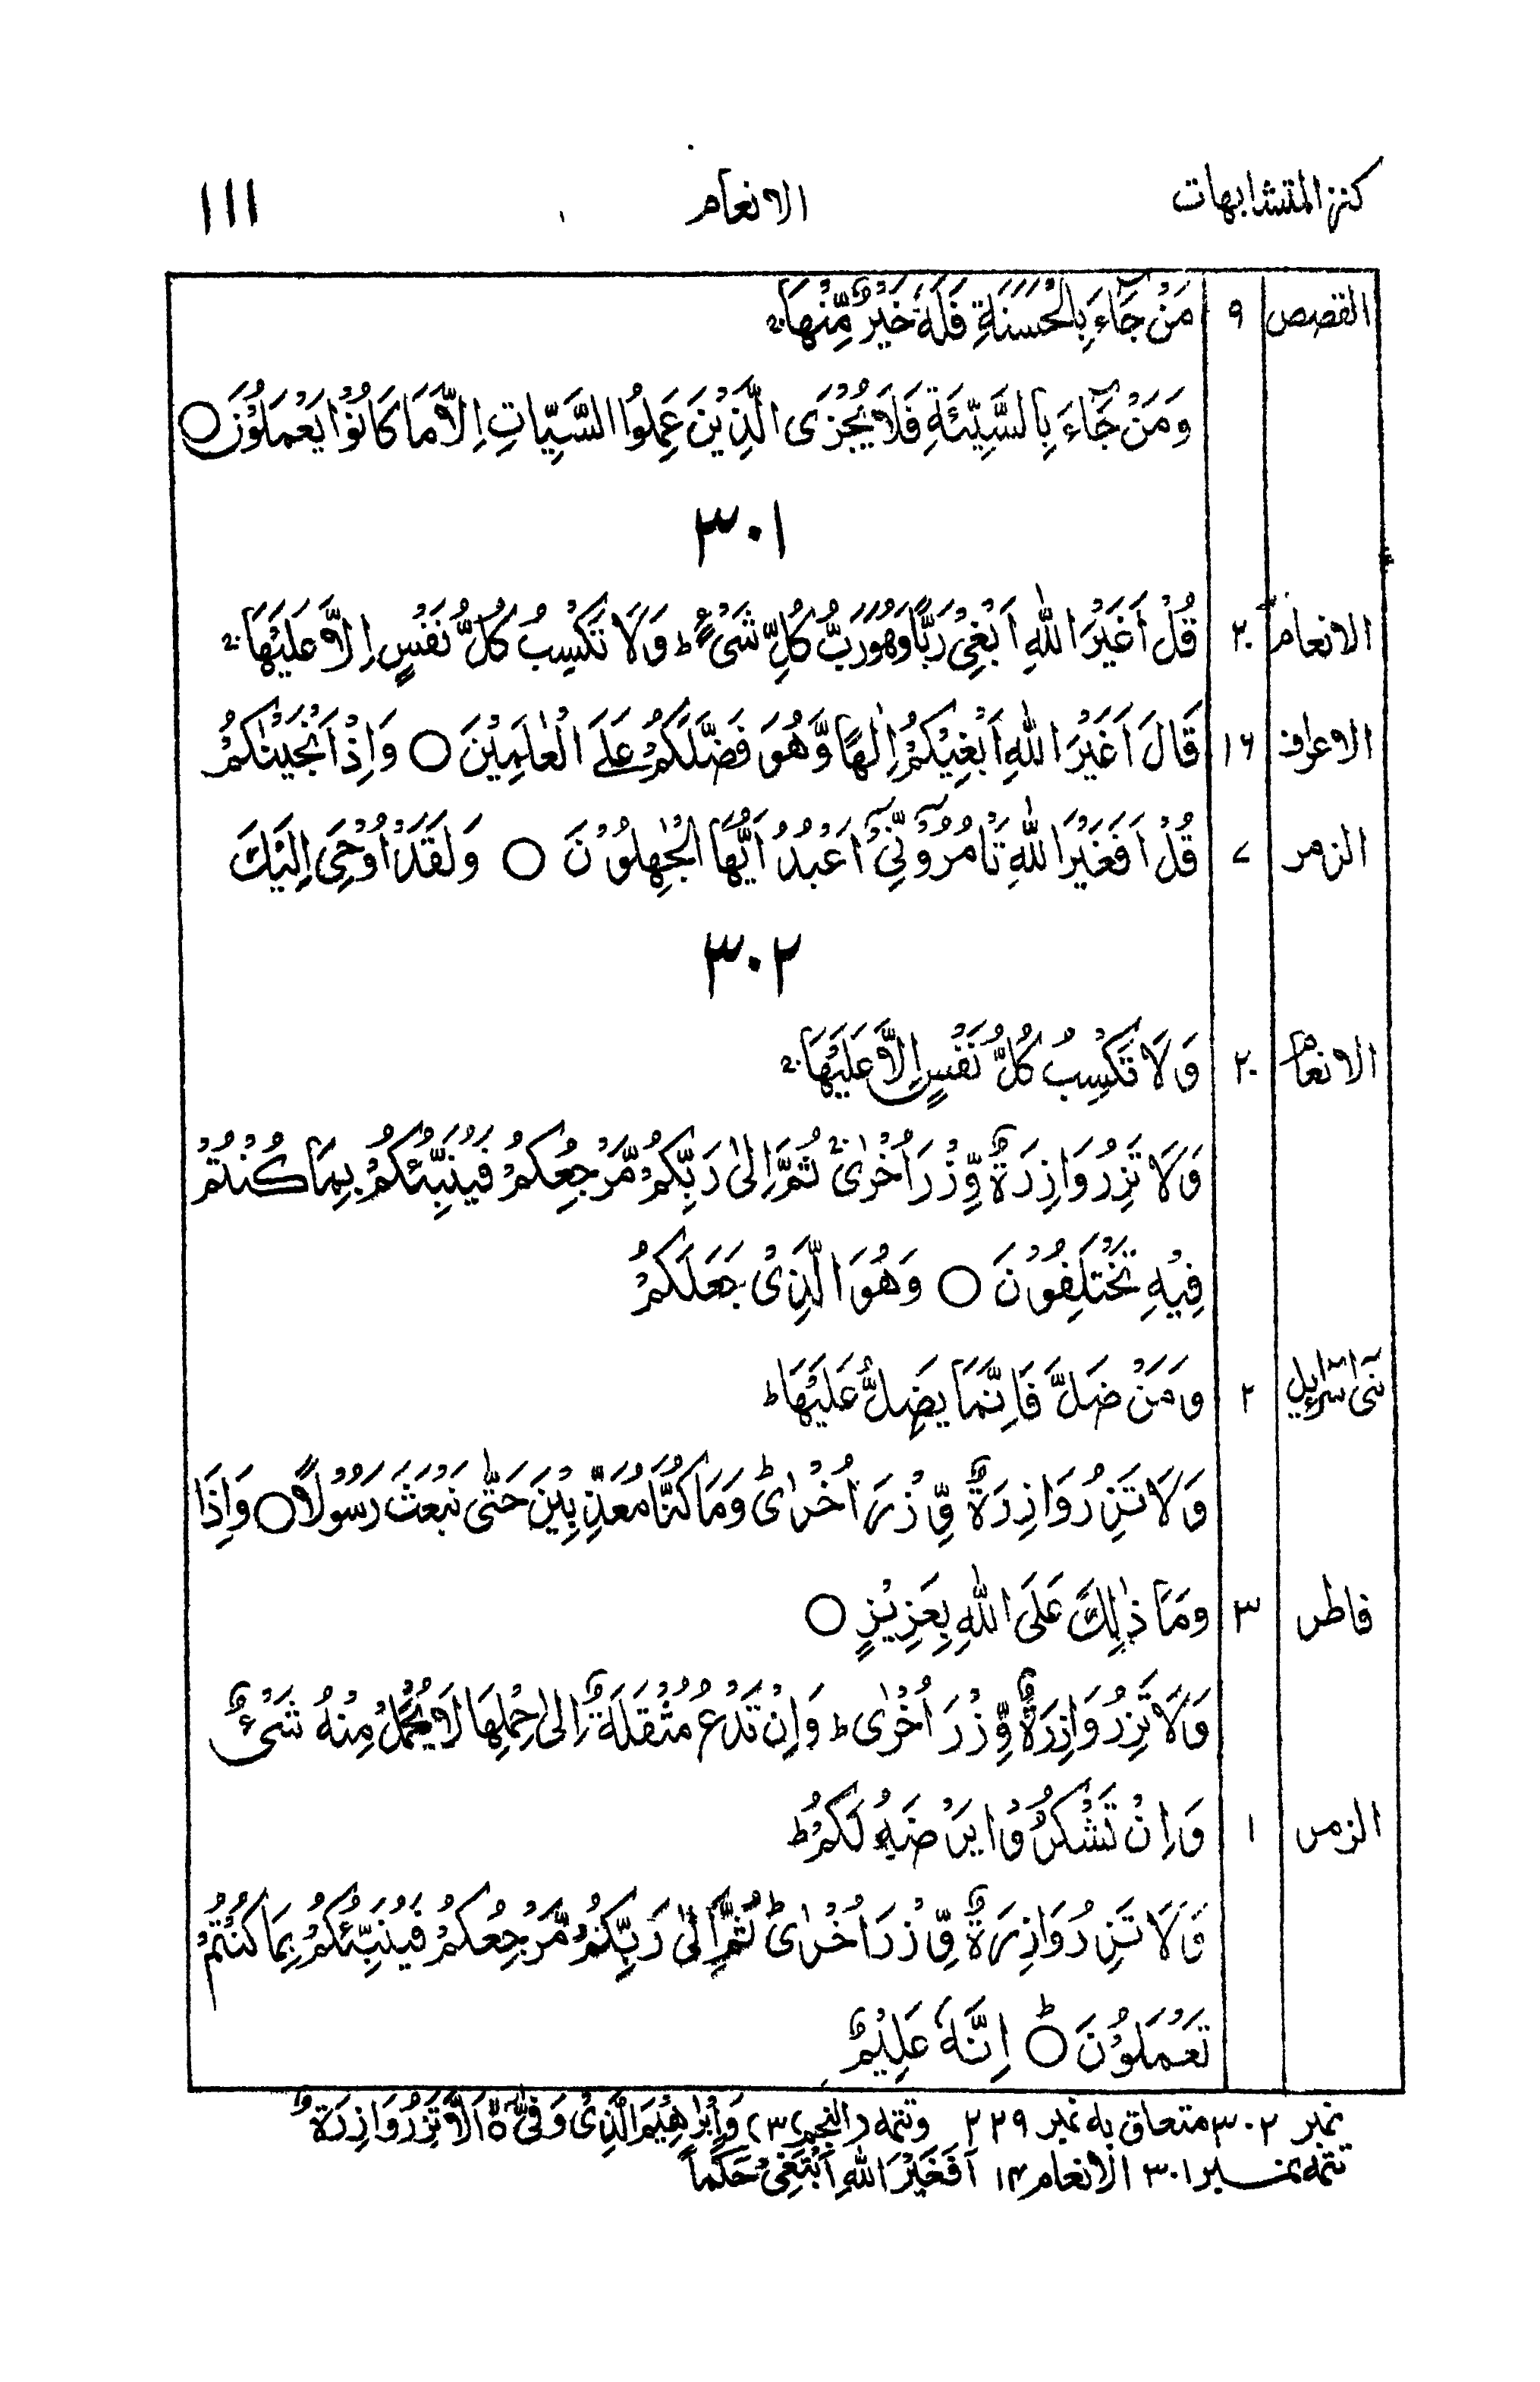 كنز المتشابهات الانعام ١١١
القصص ٩ مَنْ جَآءَ بِالْحَسَنَةِ فَلَهٗ خَيْرٌ مِّنْهَا ۚ
وَمَنْ جَآءَ بِالسَّيِّئَةِ فَلَا يُجْزَى الَّذِيْنَ عَمِلُوا السَّيِّاٰتِ اِلَّا مَا كَانُوْا يَعْمَلُوْنَ ○
٣٠١
الانعام ٢٠ قُلْ اَغَيْرَ اللّٰهِ اَبْغِيْ رَبًّا وَّهُوَ رَبُّ كُلِّ شَيْءٍ ؕ وَلَا تَكْسِبُ كُلُّ نَفْسٍ اِلَّا عَلَيْهَا ۚ
الاعراف ١٦ قَالَ اَغَيْرَ اللّٰهِ اَبْغِيْكُمْ اِلٰهًا وَّهُوَ فَضَّلَكُمْ عَلَى الْعٰلَمِيْنَ ○ وَاِذْ اَنْجَيْنٰكُمْ
الزمر ٧ قُلْ اَفَغَيْرَ اللّٰهِ تَاْمُرُوْٓنِّيْٓ اَعْبُدُ اَيُّهَا الْجٰهِلُوْنَ ○ وَلَقَدْ اُوْحِيَ اِلَيْكَ
٣٠٢
الانعام ٢٠ وَلَا تَكْسِبُ كُلُّ نَفْسٍ اِلَّا عَلَيْهَا ۚ
وَلَا تَزِرُ وَازِرَةٌ وِّزْرَ اُخْرٰى ۚ ثُمَّ اِلٰى رَبِّكُمْ مَّرْجِعُكُمْ فَيُنَبِّئُكُمْ بِمَا كُنْتُمْ
فِيْهِ تَخْتَلِفُوْنَ ○ وَهُوَ الَّذِيْ جَعَلَكُمْ
بنى اسرائيل ٢ وَمَنْ ضَلَّ فَاِنَّمَا يَضِلُّ عَلَيْهَا ؕ
وَلَا تَزِرُ وَازِرَةٌ وِّزْرَ اُخْرٰى ؕ وَمَا كُنَّا مُعَذِّبِيْنَ حَتّٰى نَبْعَثَ رَسُوْلًا ○ وَاِذَا
فاطر ٣ وَمَا ذٰلِكَ عَلَى اللّٰهِ بِعَزِيْزٍ ○
وَلَا تَزِرُ وَازِرَةٌ وِّزْرَ اُخْرٰى ؕ وَاِنْ تَدْعُ مُثْقَلَةٌ اِلٰى حِمْلِهَا لَا يُحْمَلْ مِنْهُ شَيْءٌ
الزمر ١ وَاِنْ تَشْكُرُوْا يَرْضَهُ لَكُمْ ؕ
وَلَا تَزِرُ وَازِرَةٌ وِّزْرَ اُخْرٰى ؕ ثُمَّ اِلٰى رَبِّكُمْ مَّرْجِعُكُمْ فَيُنَبِّئُكُمْ بِمَا كُنْتُمْ
تَعْمَلُوْنَ ○ؕ اِنَّهٗ عَلِيْمٌ
نمبر ٣٠٢ متعلق به نمبر ٢٢٩ وتتمه (النجم ٣) وَاِبْرٰهِيْمَ الَّذِيْ وَفّٰىٓ ۙ اَلَّا تَزِرُ وَازِرَةٌ
تتمه نمبر ٣٠١ الانعام ١٤ اَفَغَيْرَ اللّٰهِ اَبْتَغِيْ حَكَمًا